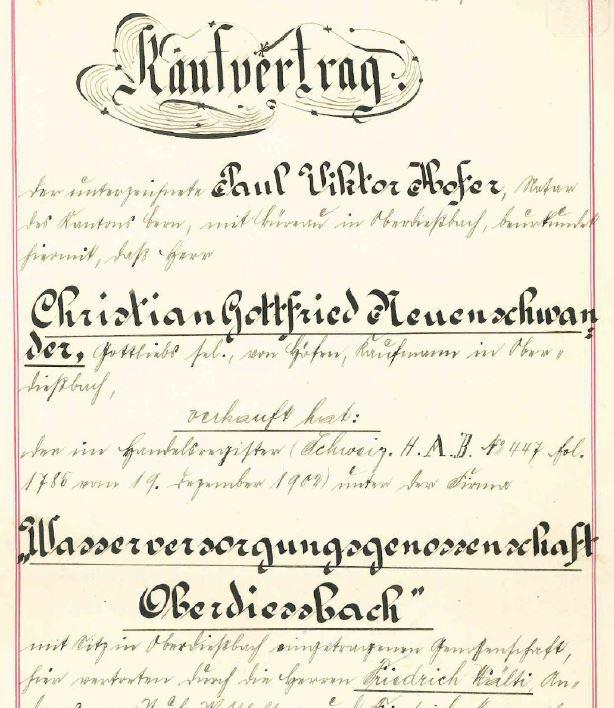 Kaufvertrag.
Der unterzeichnete Paul Viktor Hofer, Notar
des Kantons Bern, mit Büreau in Oberdießbach, beurkundet
hiermit, daß Herr
Christian Gottfried Neuenschwan-
der, Gottliebs sel., von Höfen, Kaufmann in Ober-
dießbach,
verkauft hat:
der im Handelsregister (Schweiz. H. A. B. № 447 fol.
1785 vom 19. Dezember 1902) unter der Firma
„Wasserversorgungsgenossenschaft
Oberdiessbach“
mit Sitz in Oberdießbach eingetragenen Genossenschaft,
hier vertreten durch die Herren Friedrich Wälti, An-